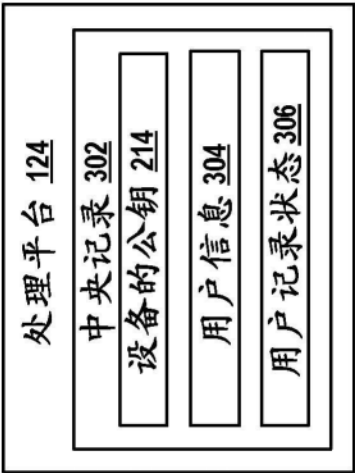 处理平台 124
中央记录 302
设备的公钥 214
用户信息 304
用户记录状态 306